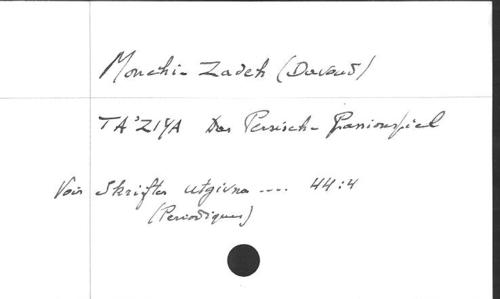 Monchi-Zadeh (Davoud)
TA'ZIYA Das Persisch-Passionsspiel
Voir Skrifter utgivna .... 44:4
(Periodiques)